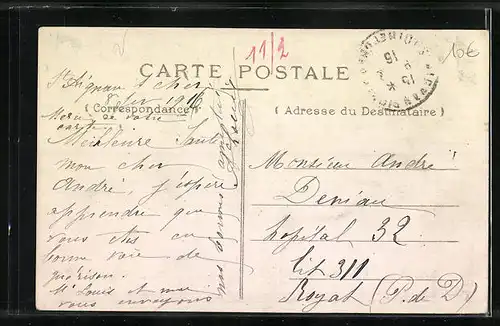 11/2
10€
CARTE POSTALE
St Aignan s Cher
8 fév 1916
(Correspondance)
Merci de votre
carte
Meilleure Santé
mon cher
André, j'espère
apprendre que
vous êtes en
bonne voie de
guérison.
St Louis et moi
vous envoyons
nos bonnes amitiés
(Adresse du Destinataire)
Monsieur André
Deniau
hopital 32
lit 311
Royat (P. de D.)